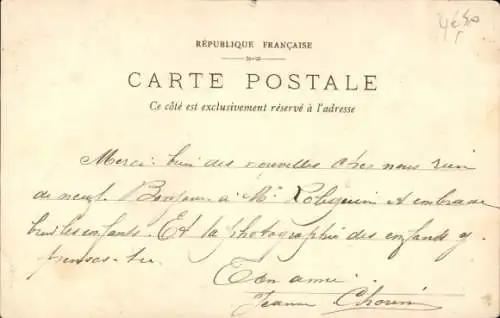 RÉPUBLIQUE FRANÇAISE
CARTE POSTALE
Ce côté est exclusivement réservé à l'adresse
Merci bien des nouvelles chez nous rien
de neuf. Bonjour à Mr et embrasse
les enfants. Et la photographie des enfants y
penses-tu
Ton amie
Jeanne